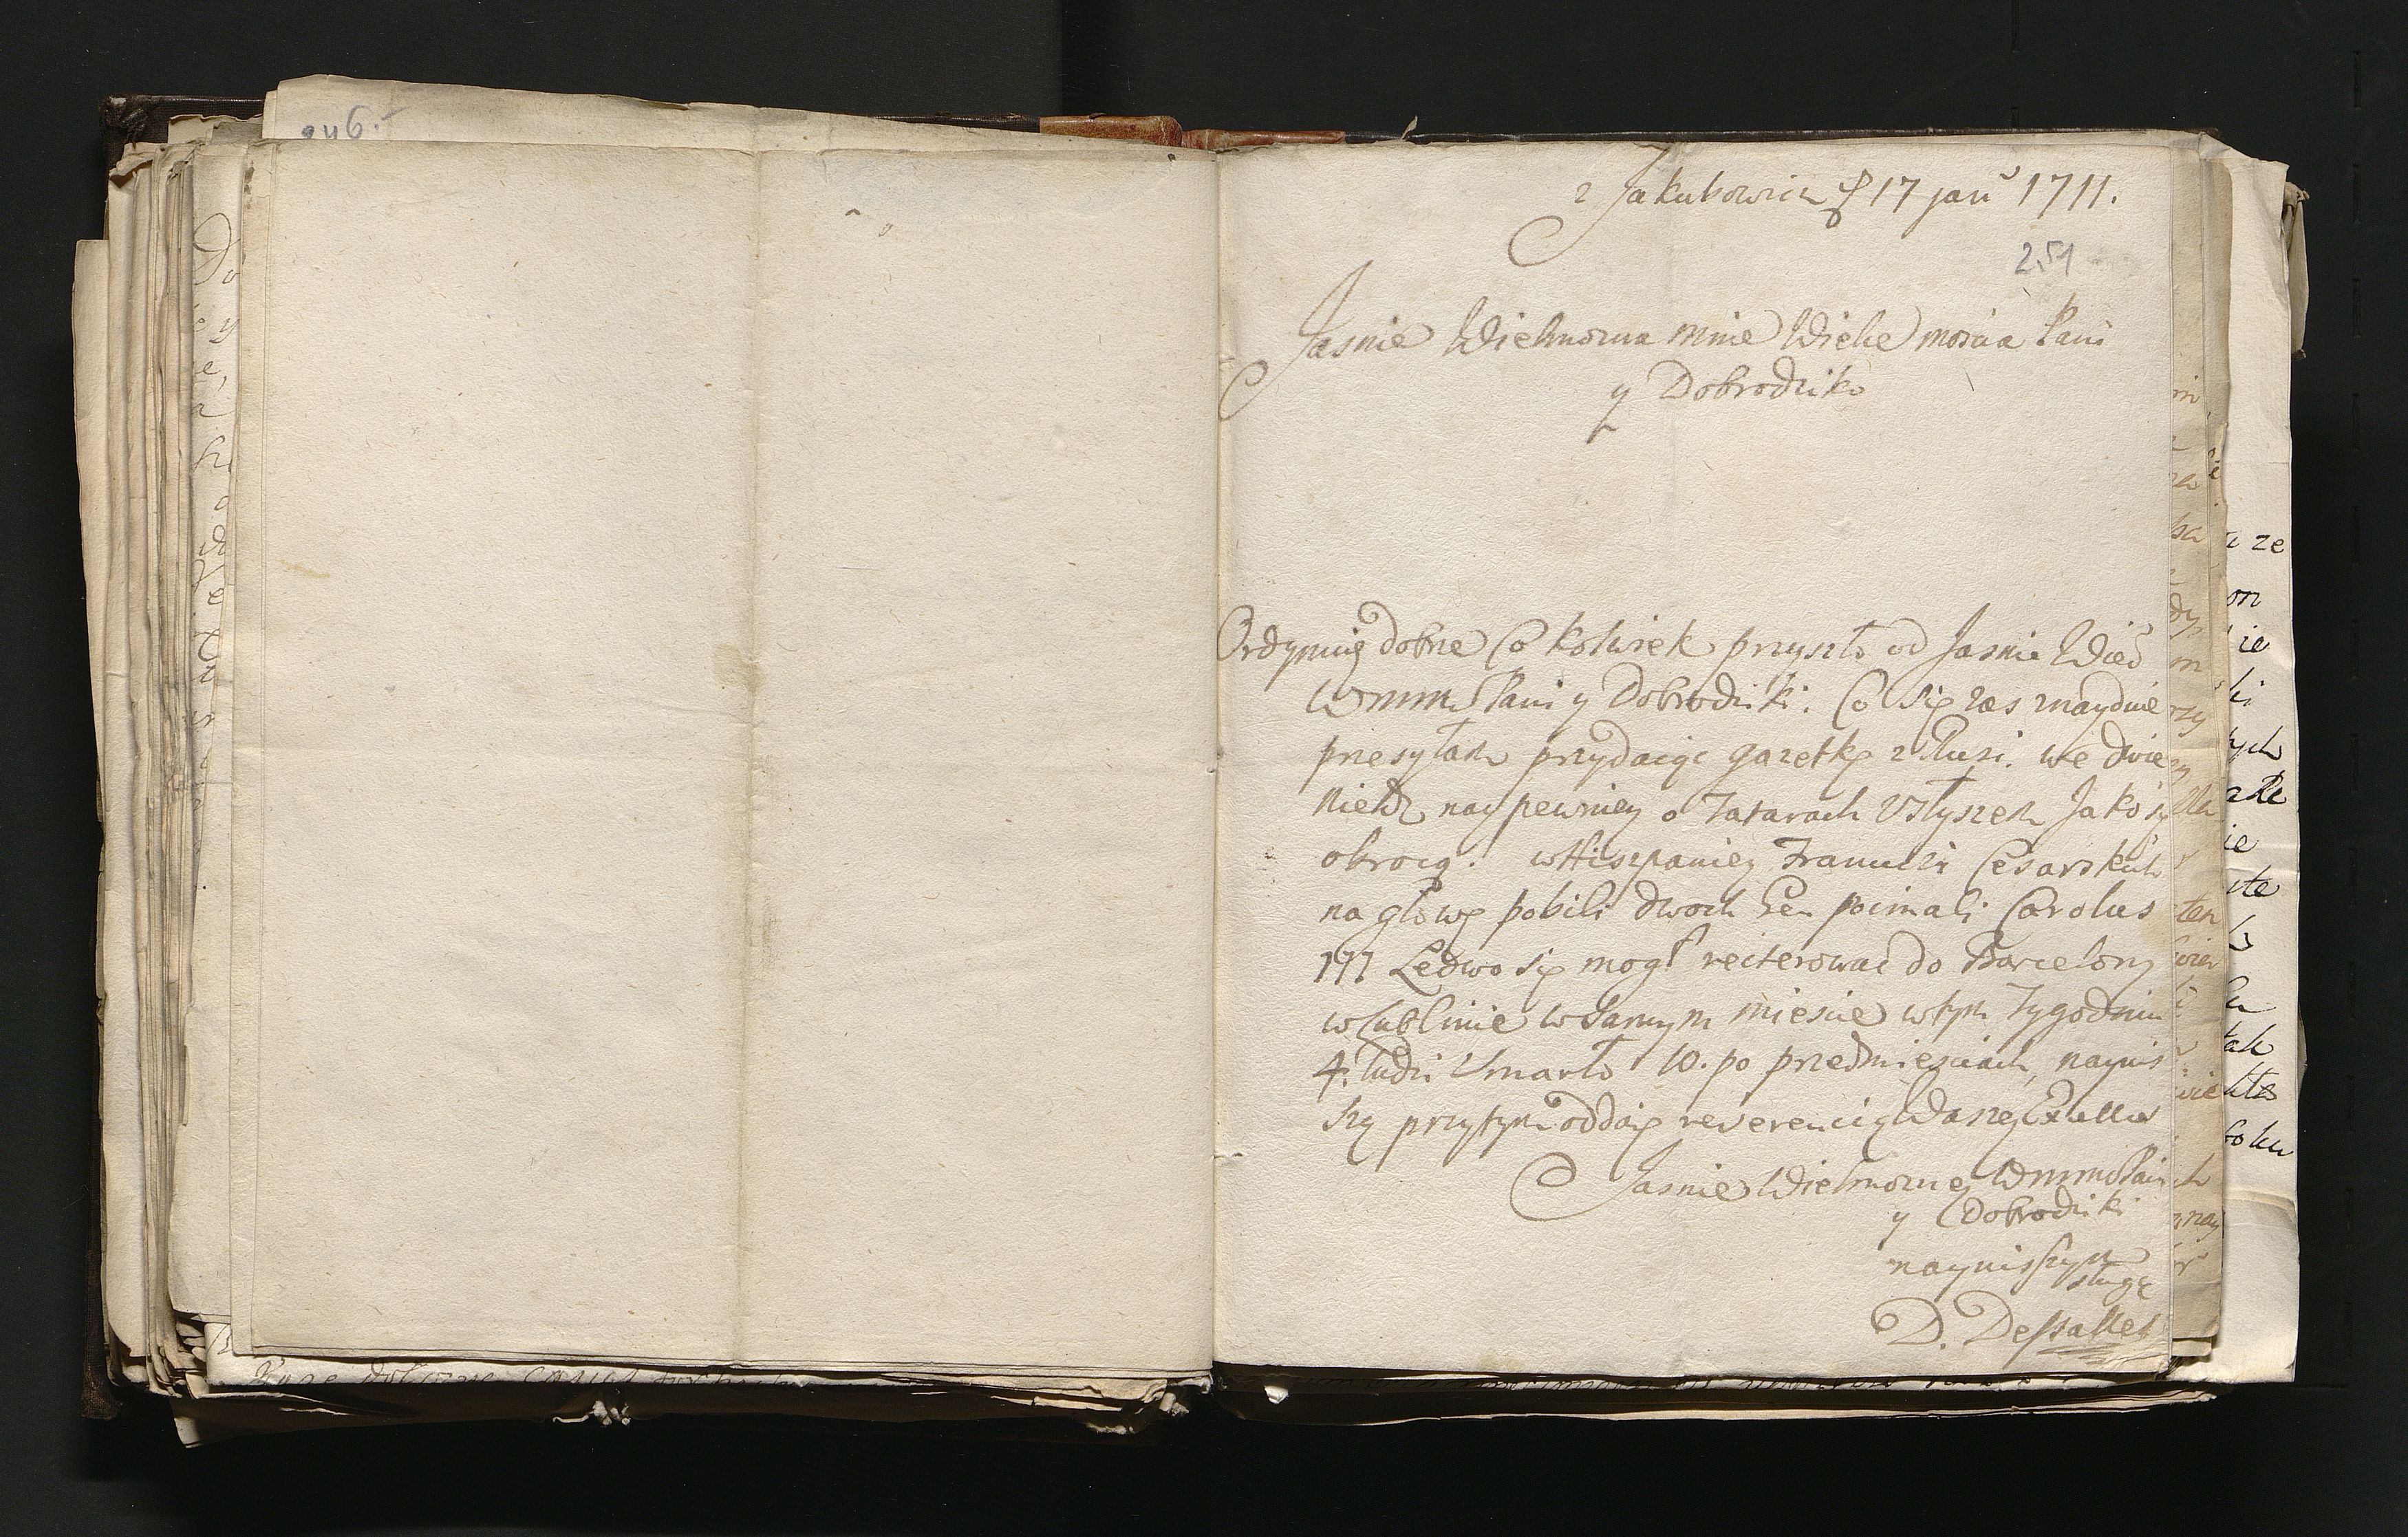 246.
z Jakubowic d 17 jan 1711.
251
Jasnie Wielmozna mnie Wielce moscia Pani
y Dobrodziko
Ordynuię dobrze Cokolwiek przyszło od Jasnie Wieł
WmmPani y Dobrodziki. Co się zas znaydzie
przesyłam przydaiąc gazetkę z Rusi. we dwie
Niedz naypewniey o Tatarach Usłyszem Jako się
obrocą. w Hiszpaniey Francuzi Cesarskich
na głowę pobili dwoch Gen poimali Carolus
III Ledwo się mogł reiterować do Barcelony
w Lublinie w samym miescie w tym Tygodniu
4. ludzi Umarło 10. po przedmiesciach, naynis
szą przytym oddaię reverencią Waszey Excellen
Jasnie Wielmozney WmmPani
y Dobrodziki
naynisszym
sługą
D. Dessalles